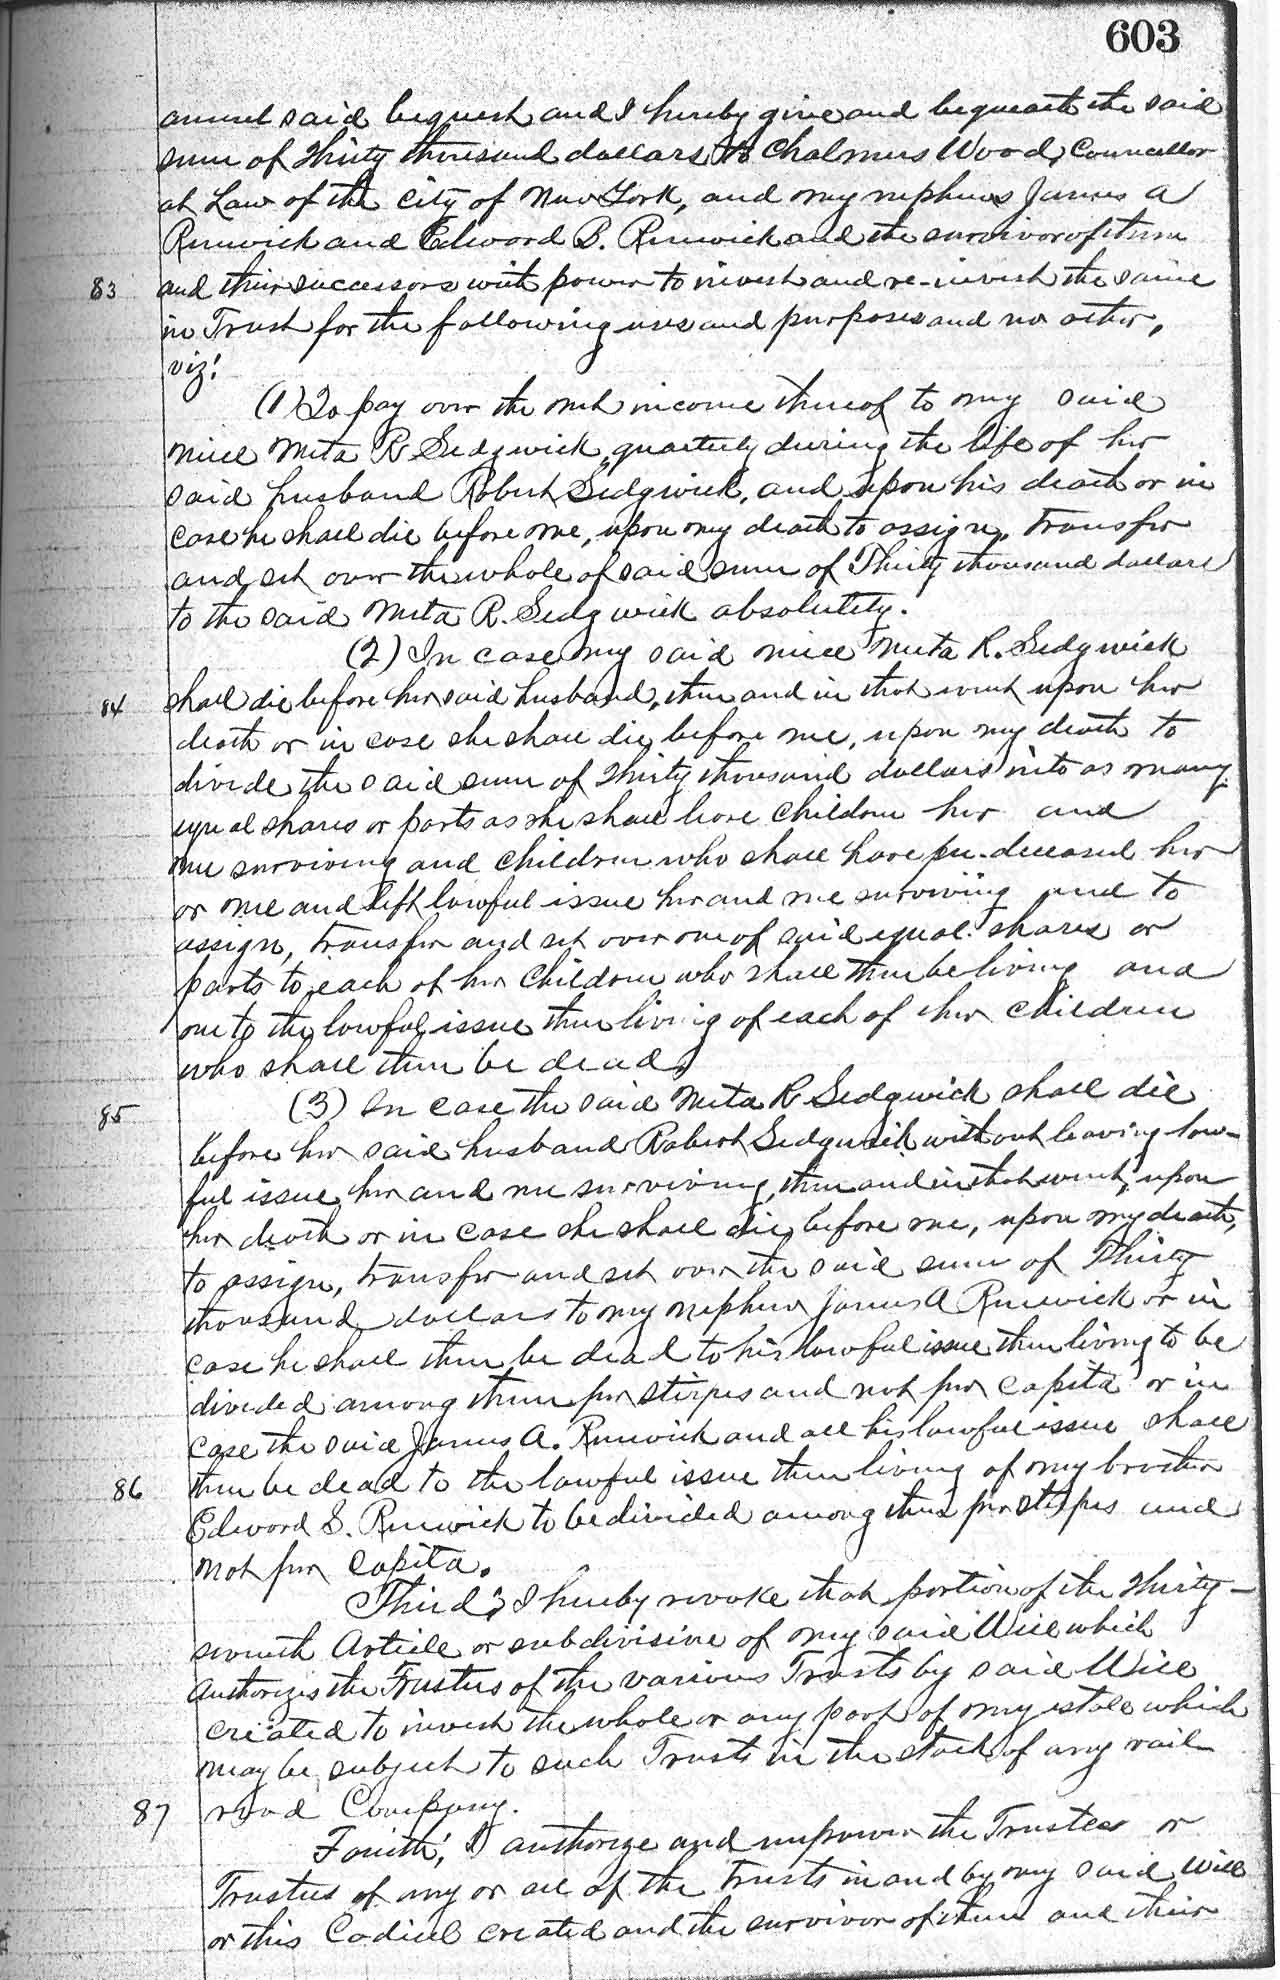 603
annul said bequest and I hereby give and bequeath the said
sum of Thirty thousand dollars to Chalmers Wood, Councellor
at Law of the City of New York, and my nephews James A
Renwick and Edward B. Renwick and the survivor of them
83 and their successors with power to invest and re-invest the same
in Trust for the following uses and purposes and no other,
viz:
(1) To pay over the net income thereof to my said
niece Meta R Sedgwick, quarterly during the life of her
said husband Robert Sedgwick, and upon his death or in
case he shall die before me, upon my death to assign, transfer
and set over the whole of said sum of Thirty thousand dollars
to the said Meta R. Sedgwick absolutely.
(2) In case my said niece Meta R. Sedgwick
84 shall die before her said husband, then and in that event upon her
death or in case she shall die before me, upon my death to
divide the said sum of Thirty thousand dollars into as many
equal shares or parts as she shall leave children her and
me surviving and children who shall have pre-deceased her
or me and left lawful issue her and me surviving and to
assign, transfer and set over one of said equal shares or
parts to each of her children who shall then be living and
one to the lawful issue then living of each of her children
who shall then be dead.
85 (3) In case the said Meta R Sedgwick shall die
before her said husband Robert Sedgwick without leaving law-
ful issue her and me surviving, then and in that event, upon
her death or in case she shall die before me, upon my death,
to assign, transfer and set over the said sum of Thirty
thousand dollars to my nephew James A Renwick or in
case he shall then be dead to his lawful issue then living to be
divided among them per stirpes and not per capita or in
case the said James A. Renwick and all his lawful issue shall
86 then be dead to the lawful issue then living of my brother
Edward S. Renwick to be divided among them per stirpes and
not per capita.
Third; I hereby revoke that portion of the Thirty-
seventh Article or subdivision of my said Will which
authorizes the Trustees of the various Trusts by said Will
created to invest the whole or any part of my estate which
may be subject to such Trusts in the stock of any rail
87 road Company.
Fourth; I authorize and empower the Trustee or
Trustees of any or all of the trusts in and by my said Will
or this Codicil created and the survivor of them and their